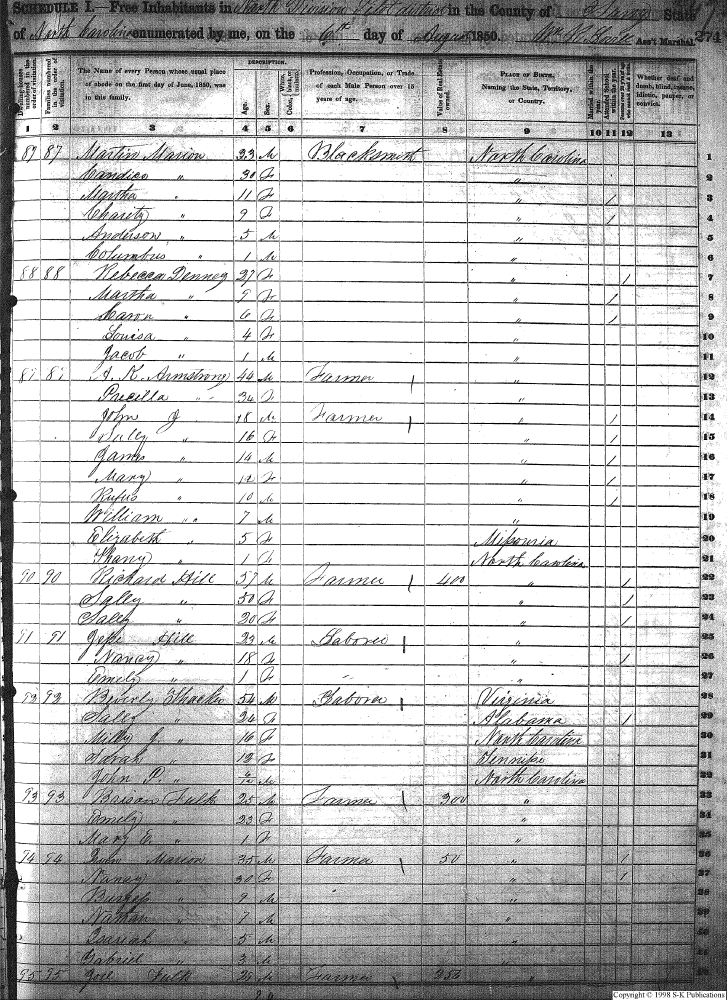 SCHEDULE I.—Free Inhabitants in North Division Pilot district in the County of Surry State
of North Carolina enumerated by me, on the 6th day of August 1850. Ass't Marshal. 274
DESCRIPTION.
The Name of every Person whose usual place of abode on the first day of June, 1850, was in this family.
Age.
Sex.
Profession, Occupation, or Trade of each Male Person over 15 years of age.
Value of Real Estate owned.
PLACE OF BIRTH. Naming the State, Territory, or Country.
Whether deaf and dumb, blind, insane, idiotic, pauper, or convict.
1 2 3 4 5 6 7 8 9 10 11 12 13
89 87 Martin Marion 33 M Blacksmont North Carolina 1
Candice " 30 F " 2
Martha " 11 F " / 3
Charity " 9 F " / 4
Anderson " 5 M " 5
Columbus " 1 M " 6
88 88 Rebecca Denney 27 F " / 7
Martha " 9 F " / 8
" 6 F " / 9
Louisa " 4 F " 10
Jacob " 1 M " 11
89 89 A. K. Armstrong 44 M Farmer / " 12
Precilla " 34 F " 13
John J 18 M Farmer / " / 14
" 16 F " / 15
James " 14 M " / 16
Mary " 12 F " / 17
Rufus " 10 M " / 18
William " 7 M " 19
Elizabeth " 5 F Missouria 20
" 1 F North Carolina 21
90 90 Richard Hill 57 M Farmer / 400 " / 22
Sally " 50 F " / 23
Sally " 20 F " / 24
91 91 Jesse Hill 22 M Laborer / " 25
Nancy " 18 F " / 26
Emely " 1 F " 27
92 92 Beverly Thacker 54 M Laborer / Virginia 28
" 24 F Alabama / 29
Milly J. " 16 F North Carolina 30
Sarah " 12 F Tennessee 31
John P. " M North Carolina 32
93 93 Brison Fulk 25 M Farmer / 300 " 33
Emely " 23 F " 34
Mary E. " 1 F " 35
94 94 John Marion 35 M Farmer / 50 " / 36
Nancy " 30 F " / 37
Burgess " 9 M " 38
Nathan " 7 M " 39
Isariah " 5 M " 40
Gabriel " 3 M " 41
95 95 Joel Fulk 28 M Farmer / 250 " 42
Copyright © 1998 S-K Publications